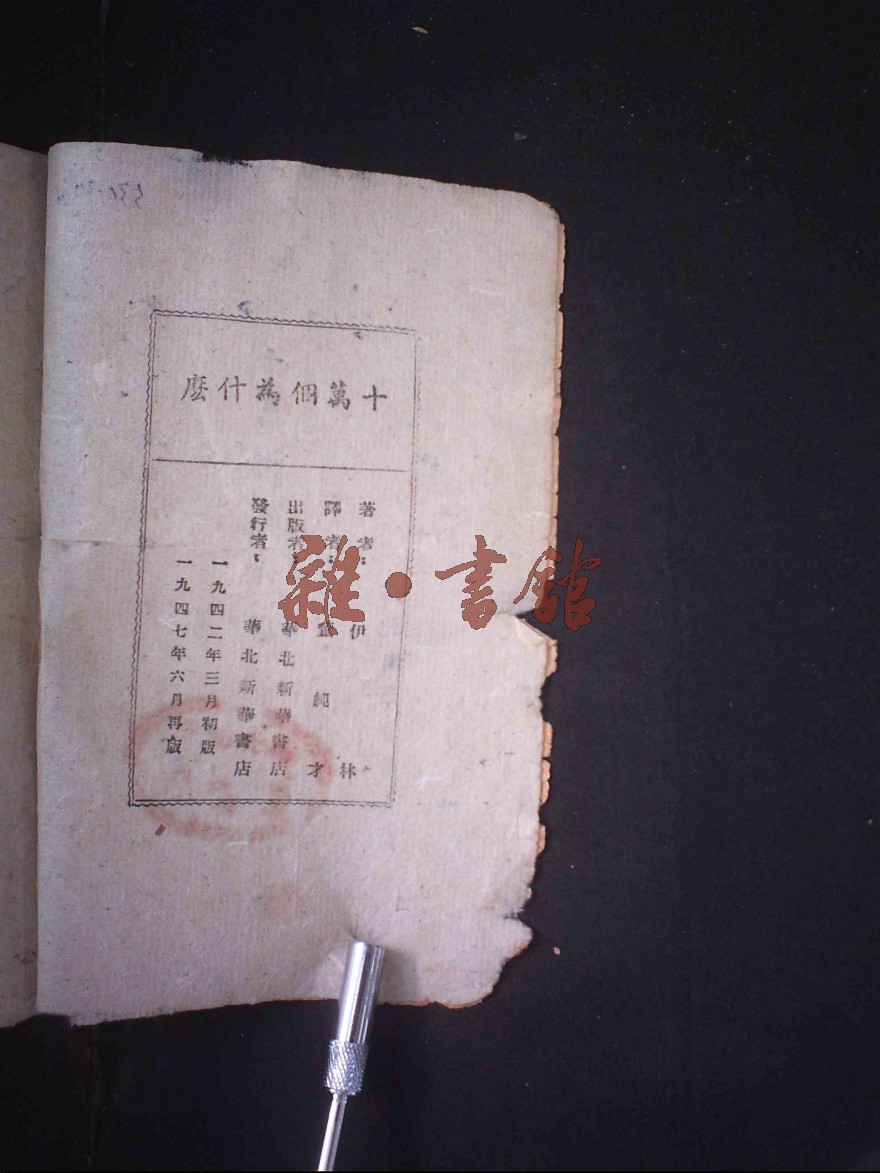 十萬個為什麼
著者：伊林
譯者：董純才
出版者：華北新華書店
發行者：華北新華書店
一九四二年三月初版
一九四七年六月再版
雜·書館